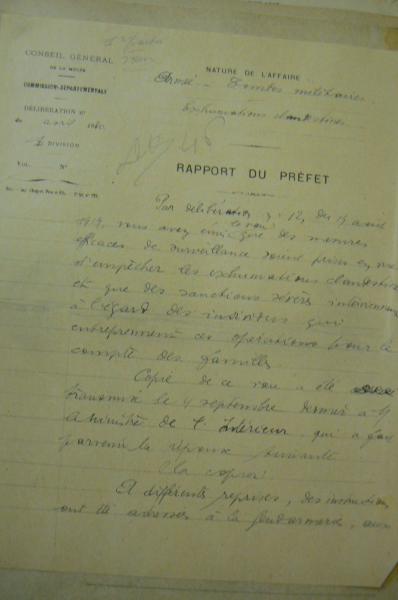 CONSEIL GÉNÉRAL
DE LA MEUSE
COMMISSION DÉPARTEMENTALE
DÉLIBÉRATION N°
du avril 1920
DIVISION
VOL. N°
NATURE DE L'AFFAIRE
Armée - Tombes militaires
Exhumations clandestines
RAPPORT DU PRÉFET
Par délibération n° 12, du avril
1919, vous avez émis le vœu que des mesures
efficaces de surveillance soient prises en vue
d'empêcher les exhumations clandestines
et que des sanctions sévères interviennent
à l'égard des individus qui
entreprennent ces opérations pour le
compte des familles.
Copie de ce vœu a été
transmise le 4 septembre dernier à M
le Ministre de l'Intérieur, qui a fait
parvenir la réponse suivante
(la copier)
A différentes reprises, des instructions
ont été adressées à la gendarmerie, aux